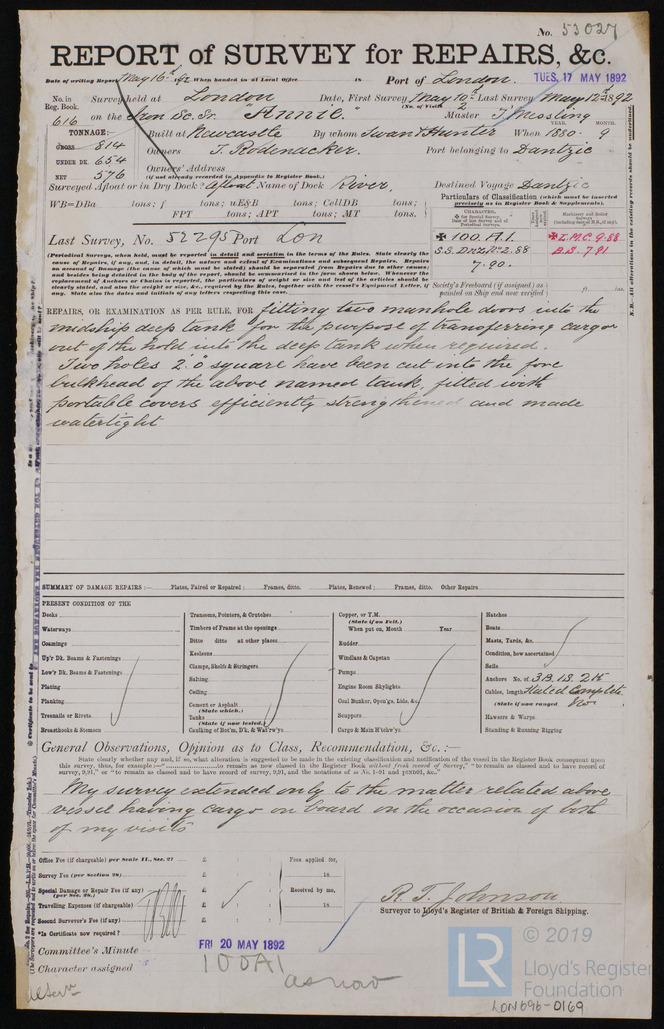 No. 53027
REPORT of SURVEY for REPAIRS, &c.
Date of writing Report May 16th 92 When handed in at Local Office 18 Port of London. TUES. 17 MAY 1892
No. in Reg. Book. Survey held at London Date, First Survey May 10th Last Survey May 12th 1892
(No. of Visits 2)
616 on the Iron Sc. Sr. "Annie." Master J. Messling
TONNAGE:— YEAR. MONTH.
GROSS 814 Built at Newcastle By whom Swan & Hunter When 1880 . 9
UNDER DK. 654 Owners T. Rodenacker. Port belonging to Dantzic
NET 576 Owners' Address
(if not already recorded in Appendix to Register Book.)
Surveyed Afloat or in Dry Dock? Afloat Name of Dock River, Destined Voyage Dantzic
WB=DBa tons; f tons; uE&B tons; CellDB tons;
FPT tons; APT tons; MT tons.
Particulars of Classification (which must be inserted precisely as in Register Book & Supplements).
CHARACTER,
Last Survey, No. 52295 Port Lon
✠ 100.A.1. ✠ L.M.C. 9.88
S.S. Dnz. No. 2.88 B.S. 7.91
7.90.
(Periodical Surveys, when held, must be reported in detail and seriatim in the terms of the Rules. State clearly the
cause of Repairs, if any, and, in detail, the nature and extent of Examinations and subsequent Repairs. Repairs
on account of Damage (the cause of which must be stated) should be separated from Repairs due to other causes;
and besides being detailed in the body of the report, should be summarised in the form shown below. Whenever the
replacement of Anchors or Chains is reported, the particulars of weight or size and test of the articles should be
clearly stated, and also the weight or size, &c., required by the Rules, together with the vessel's Equipment Letter, if
any. State also the dates and initials of any letters respecting this case.
Society's Freeboard (if assigned) as painted on Ship and now verified ft. ins.
REPAIRS, OR EXAMINATION AS PER RULE, FOR fitting two manhole doors into the
midship deep tank for the purpose of transferring cargo
out of the hold into the deep tank when required.
Two holes 2'.0" square have been cut into the fore
bulkhead of the above named tank, fitted with
portable covers efficiently strengthened and made
watertight
SUMMARY OF DAMAGE REPAIRS :— Plates, Faired or Repaired ; Frames, ditto. Plates, Renewed ; Frames, ditto. Other Repairs
PRESENT CONDITION OF THE
Decks
Waterways
Coamings
Up'r Dk. Beams & Fastenings
Low'r Dk. Beams & Fastenings
Plating
Planking
Treenails or Rivets
Breasthooks & Stemson
Transoms, Pointers, & Crutches
Timbers of Frame at the openings
Ditto ditto at other places
Keelsons
Clamps, Shelfs & Stringers
Salting
Ceiling
Cement or Asphalt
(State which.)
Tanks
(State if now tested.)
Caulking of Bot'm, D'k, & Wat'rw'ys
Copper, or Y.M.
(State if on Felt.)
When put on, Month Year
Rudder
Windlass & Capstan
Pumps
Engine Room Skylights
Coal Bunker, Open'gs, Lids, &c.
Scuppers
Cargo & Main H'tchw'ys
Hatches
Boats
Masts, Yards, &c.
Condition, how ascertained
Sails
Anchors No. of 3B. 1S. 2K
Cables, length Stated Complete
(State if now ranged) No.
Hawsers & Warps
Standing & Running Rigging
General Observations, Opinion as to Class, Recommendation, &c. :—
State clearly whether any, and if so, what alteration is suggested to be made in the existing classification and notification of the vessel in the Register Book consequent upon
this survey, thus, for example:—" to remain as now classed in the Register Book without fresh record of Survey," "to remain as classed and to have record of
survey, 9,91," or "to remain classed and to have record of survey, 9,91, and the notations of ss No. 1-91 and ptND91, &c."
My survey extended only to the matter related above
vessel having cargo on board on the occasion of both
of my visits
Office Fee (if chargeable) per Scale II., Sec. 27 £ : : Fees applied for,
Survey Fee (per Section 28) £ : : 18
Special Damage or Repair Fee (if any) (per Sec. 28.) £ : : Received by me,
Travelling Expenses (if chargeable) £ : : 18
Second Surveyor's Fee (if any) £ : :
*Is Certificate now required?
R. T. Johnson
Surveyor to Lloyd's Register of British & Foreign Shipping.
Committee's Minute FRI 20 MAY 1892
Character assigned 100A1
as now
LR © 2019
Lloyd's Register
Foundation
LON696-0169